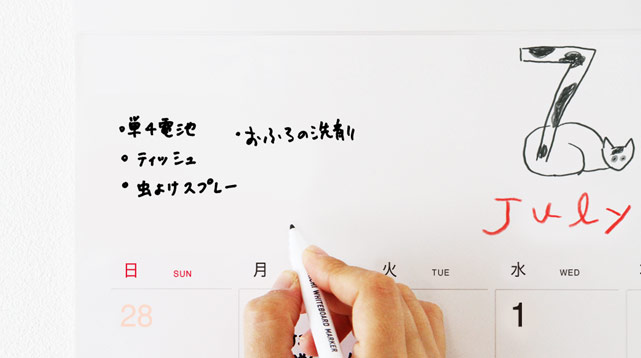 ・単4電池
・ティッシュ
・虫よけスプレー
・おふろの洗剤
7
July
日 SUN 月 火 TUE 水 WED
28 1
WHITEBOARD MARKER